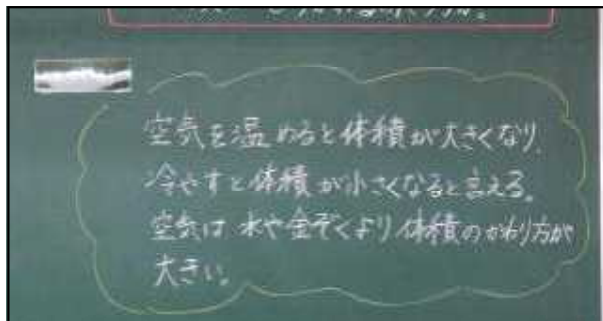 空気を温めると体積が大きくなり、
冷やすと体積が小さくなると言える。
空気は水や金ぞくより体積のかわり方が
大きい。